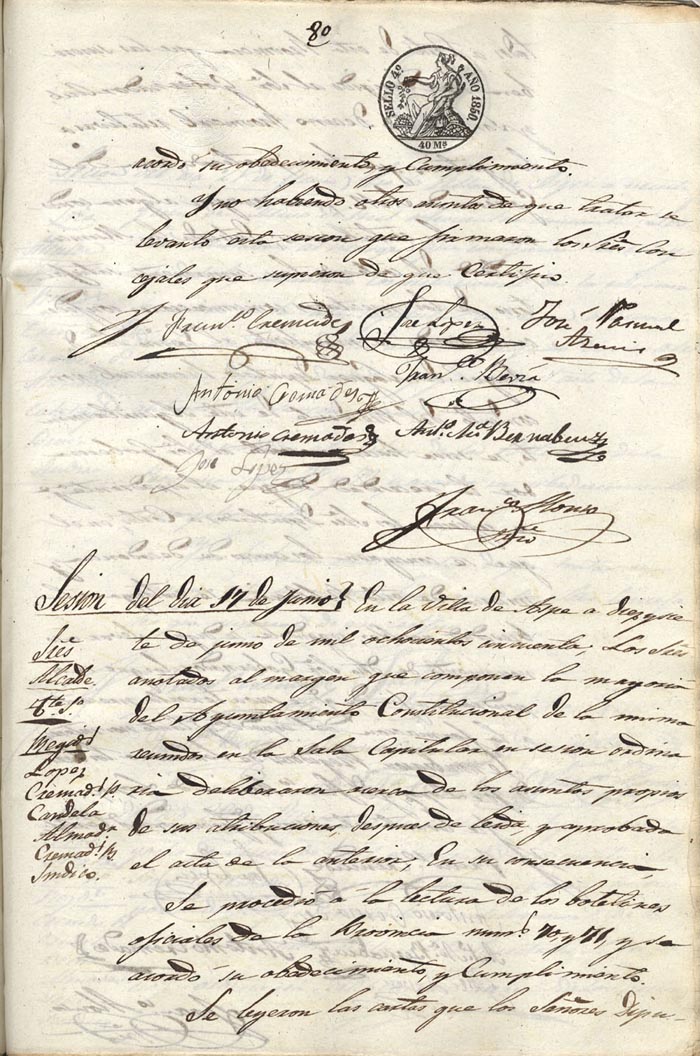 80
SELLO 4º AÑO 1850.
40 Ms
acordó su obedecimiento, y Cumplimiento.
Y no habiendo otros asuntos de que tratar se
levantó esta sesion que firmaron los Sres Con
cejales que supieron de que Certifico.
Franco Cremades
Jose Lopez
José Pascual
Asencio
Franco Beviá
Antonio Cremades
Antonio Cremades
Anto Ma Bernabeu
Jose Lopez
Franco Alonso
Srio
Sesion del dia 17 de junio. En la Villa de Aspe a diez y sie
te de junio de mil ochocientos cincuenta; Los Sres
anotados al margen que componen la mayoria
del Ayuntamiento Constitucional de la misma
reunidos en la Sala Capitular en sesion ordina
ria deliberaron acerca de los asuntos propios
de sus atribuciones, despues de leida y aprobada
el acta de la anterior; En su consecuencia,
Sres
Alcalde
Tte 1º
Regids
Lopez
Cremads 1º
Candela
Almodr
Cremads
Sindico.
Se procedió a la lectura de los boletines
oficiales de la Provincia nums 70, y 71, y se
acordó su obedecimiento, y Cumplimiento.
Se leyeron las cartas que los Señores Dipu-